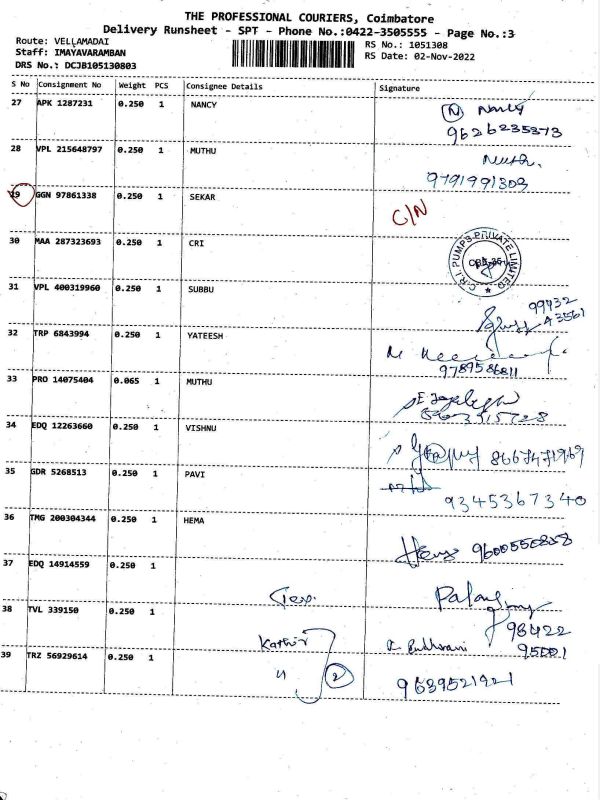 THE PROFESSIONAL COURIERS, Coimbatore
Delivery Runsheet - SPT - Phone No.:0422-3505555 - Page No.:3
Route: VELLAMADAI
RS No.: 1051308
Staff: IMAYAVARAMBAN
RS Date: 02-Nov-2022
DRS No.: DCJB105130803
S No Consignment No Weight PCS Consignee Details Signature
27 APK 1287231 0.250 1 NANCY
N Nancy
9626235373
28 VPL 215648797 0.250 1 MUTHU
Muth.
9791991303
29 GGN 97861338 0.250 1 SEKAR
C/N
30 MAA 287323693 0.250 1 CRI
C.R.I. PUMPS PRIVATE LIMITED
31 VPL 400319960 0.250 1 SUBBU
99432
43561
32 TRP 6843994 0.250 1 YATEESH
9789586811
33 PRO 14075404 0.065 1 MUTHU
34 EDQ 12263660 0.250 1 VISHNU
8667471969
35 GDR 5268513 0.250 1 PAVI
9345367340
36 TMG 200304344 0.250 1 HEMA
9600550838
37 EDQ 14914559 0.250 1
38 TVL 339150 0.250 1
98422
95001
39 TRZ 56929614 0.250 1 Kathir
2
9639521921